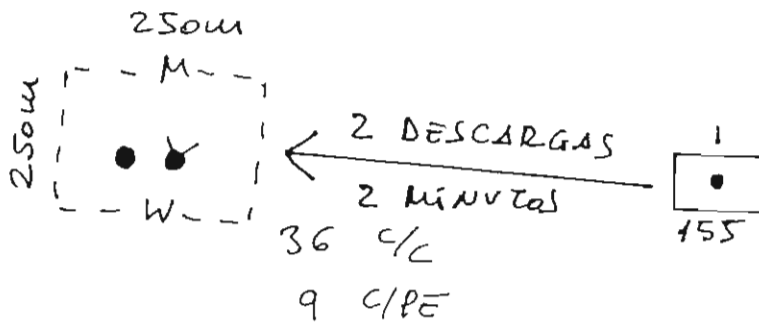 250m
250m
M
W
2 DESCARGAS
2 MINUTOS
36 C/C
9 C/PE
I
155